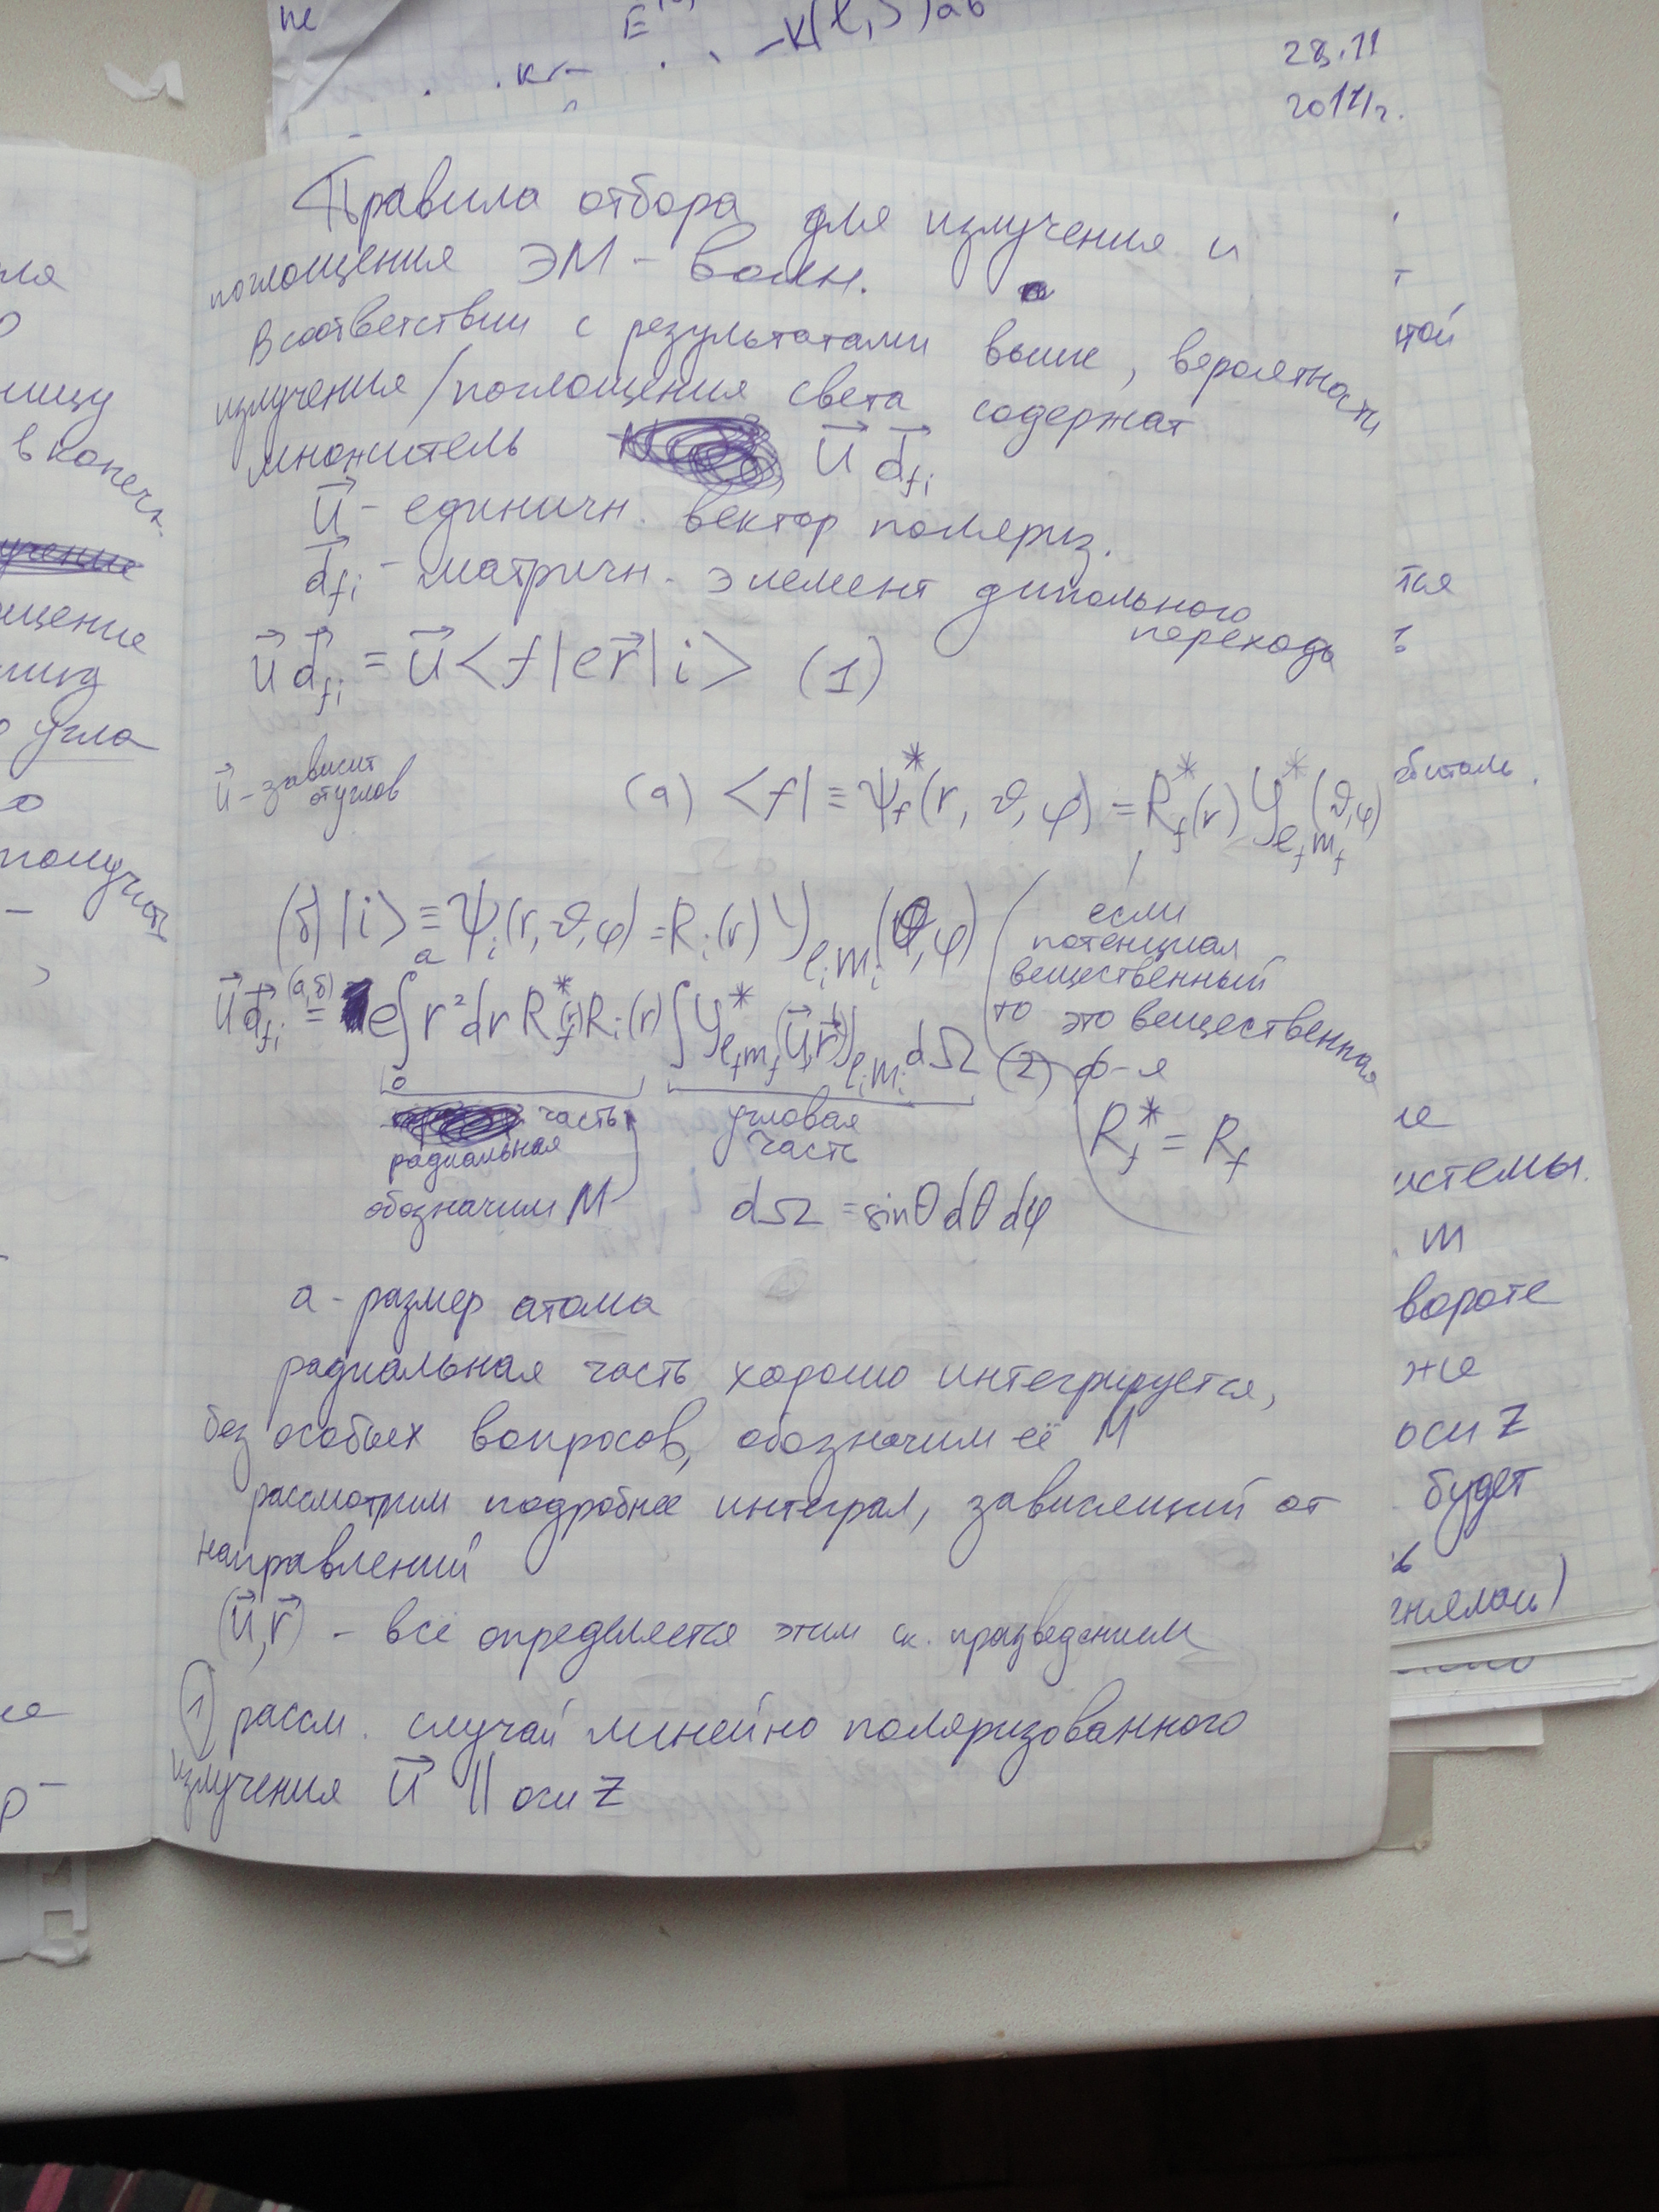 28.11
2017г.
Правила отбора для излучения и
поглощения ЭМ - волн.
В соответствии с результатами выше, вероятность
излучения/поглощения света содержат
множитель u⃗ d⃗_fi
u⃗ - единичн. вектор поляриз.
d⃗_fi - матричн. элемент дипольного
перехода
u⃗ d⃗_fi = u⃗ <f|er⃗|i> (1)
u⃗ - зависит
от углов
(а) <f| ≡ ψ_f^*(r, ϑ, φ) = R_f^*(r) Y^*_{l_f m_f}(ϑ,φ)
(б) |i> ≡ ψ_i(r, ϑ, φ) = R_i(r) Y_{l_i m_i}(θ,φ)
если
потенциал
вещественный
то это вещественная
ф-я
R_f^* = R_f
u⃗ d⃗_fi =^{(а,б)} e ∫_0^a r² dr R_f^*(r) R_i(r) ∫ Y^*_{l_f m_f} (u⃗, r⃗) Y_{l_i m_i} dΩ (2)
часть
радиальная
обозначим M
угловая
часть
dΩ = sinθ dθ dφ
a - размер атома
радиальная часть хорошо интегрируется,
без особых вопросов, обозначим её M
рассмотрим подробнее интеграл, зависящий от
направлений
(u⃗, r⃗) - всё определяется этим ск. произведением
1 рассм. случай линейно поляризованного
излучения u⃗ || оси z
ницу
в конечн.
щение
угла
получить
той
тся
истемы.
m
вороте
же
оси z
будет